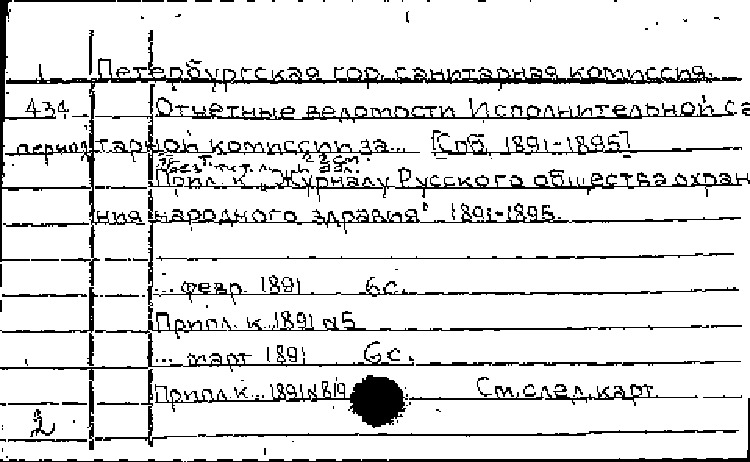 1 Петербургская гор. санитарная комиссия.
434 Отчетные ведомости Исполнительной са
период тарной комиссии за... [Спб, 1891-1895]
Прил. к „Журналу Русского общества охран
ния народного здравия" 1891-1895.
... февр. 1891 6с.
Прил. к .. 1891 №5
... март 1891 6с.
Прил. к .. 1891 №8/9 См. след. карт.
2